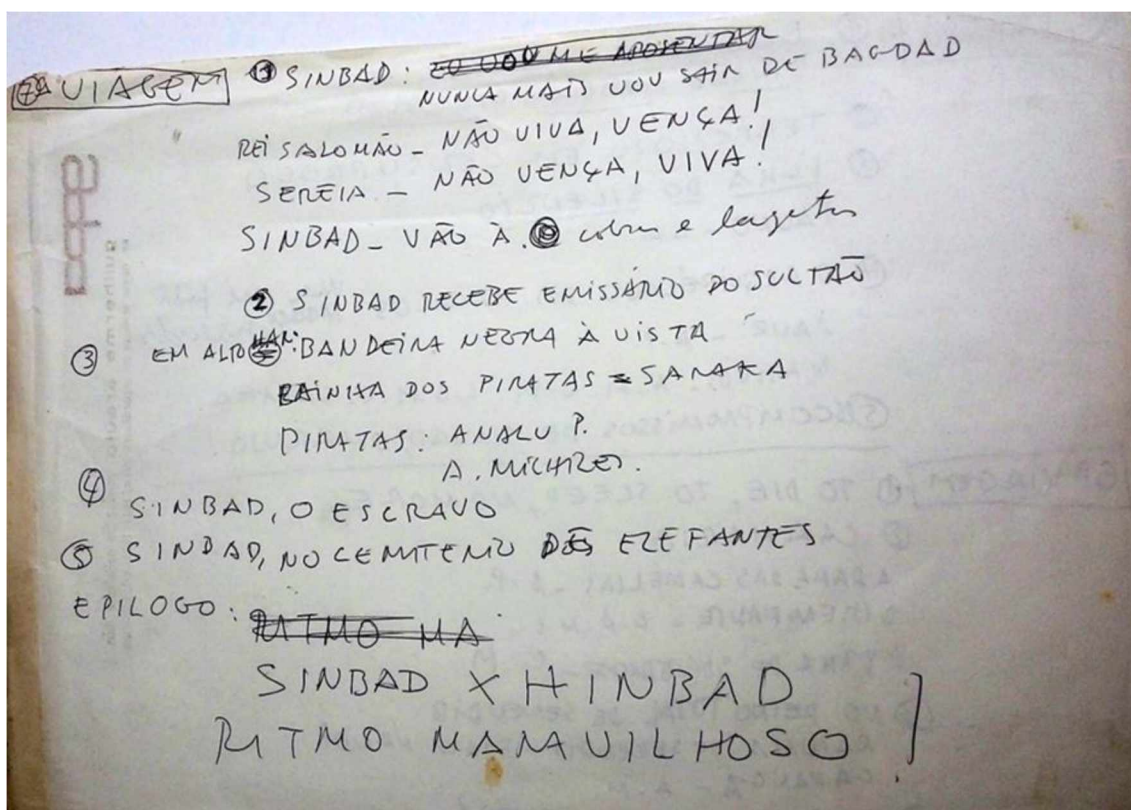 7ª VIAGEM ① SINBAD: EU VOU ME APOSENTAR
NUNCA MAIS VOU SAIR DE BAGDAD
REI SALOMÃO - NÃO VIVA, VENÇA!
SEREIA - NÃO VENÇA, VIVA!
SINBAD - VÃO À. cobras e lagartos
② SINBAD RECEBE EMISSÁRIO DO SULTÃO
③ EM ALTO MAR: BANDEIRA NEGRA À VISTA
RAINHA DOS PIRATAS = SARAKA
PIRATAS: ANALU P.
A.
④ SINBAD, O ESCRAVO
⑤ SINBAD, NO CEMITÉRIO DOS ELEFANTES
EPILOGO: RITMO MA
SINBAD X HINBAD
RITMO MARAVILHOSO!